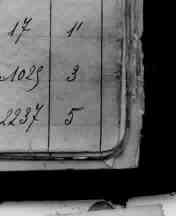 17 11
1029 3
2237 5